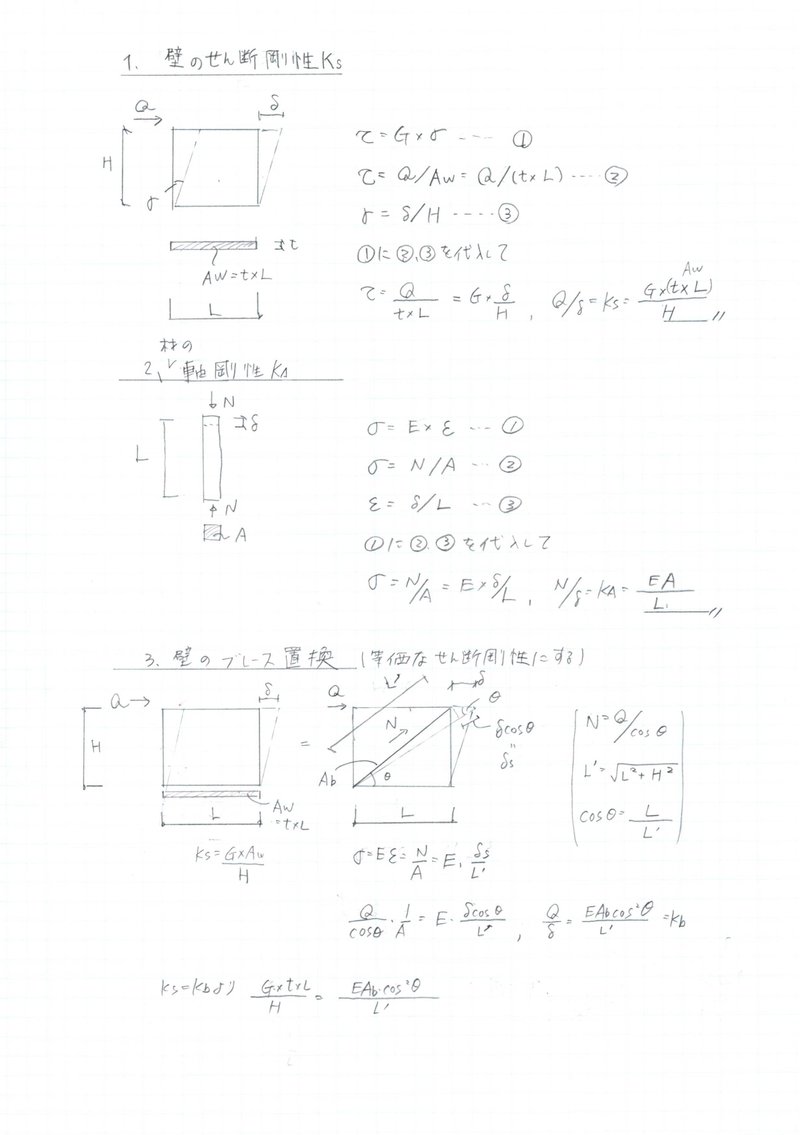 1. 壁のせん断剛性Ks
Q
δ
H
γ
t
Aw=t×L
L
τ=G×γ ---- ①
τ=Q/Aw=Q/(t×L) ---- ②
γ=δ/H ---- ③
①に②、③を代入して
τ=Q/(t×L)=G×δ/H , Q/δ=Ks=G×(t×L)/H
Aw
材の
2、軸剛性KA
N
δ
L
N
A
σ=E×ε --- ①
σ=N/A --- ②
ε=δ/L --- ③
①に②.③を代入して
σ=N/A=E×δ/L , N/δ=KA=EA/L
3、壁のブレース置換 (等価なせん断剛性にする)
Q
δ
H
L
Aw
=t×L
Ks=G×Aw/H
=
Q
L'
δ
θ
N
δcosθ
"
δs
Ab
θ
L
N=Q/cosθ
L'=√L²+H²
cosθ=L/L'
σ=Eε=N/A=E.δs/L'
Q/cosθ・1/A=E・δcosθ/L' , Q/δ=EAbcos²θ/L'=Kb
Ks=Kbより G×t×L/H=EAb・cos²θ/L'